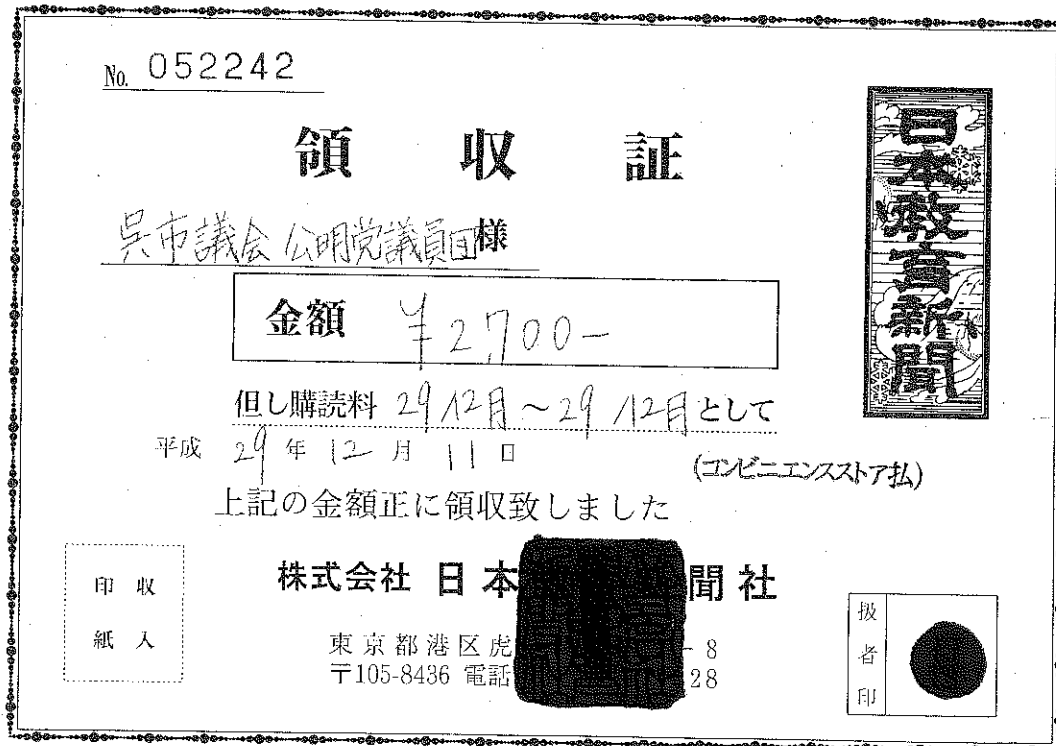 No. 052242
領収証
呉市議会 公明党議員団様
金額 ¥2,700-
但し購読料 29/12月～29/12月として
平成 29年 12月 11日
(コンビニエンスストア払)
上記の金額正に領収致しました
株式会社 日本 聞社
東京都港区虎 -8
〒105-8436 電話 28
収入
印紙
扱者印
日本教育新聞